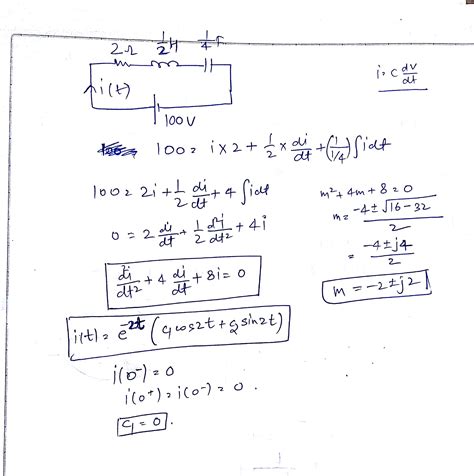 2Ω ½H ¼F
i(t)
100V
i = C dv/dt
100 = i×2 + ½ × di/dt + (1/(1/4)) ∫idt
100 = 2i + ½ di/dt + 4 ∫idt
0 = 2 di/dt + ½ d²i/dt² + 4i
d²i/dt² + 4 di/dt + 8i = 0
m² + 4m + 8 = 0
m = (-4 ± √(16-32))/2
= (-4 ± j4)/2
m = -2 ± j2
i(t) = e^(-2t) (C₁cos2t + C₂sin2t)
i(0⁻) = 0
i(0⁺) = i(0⁻) = 0.
C₁ = 0.